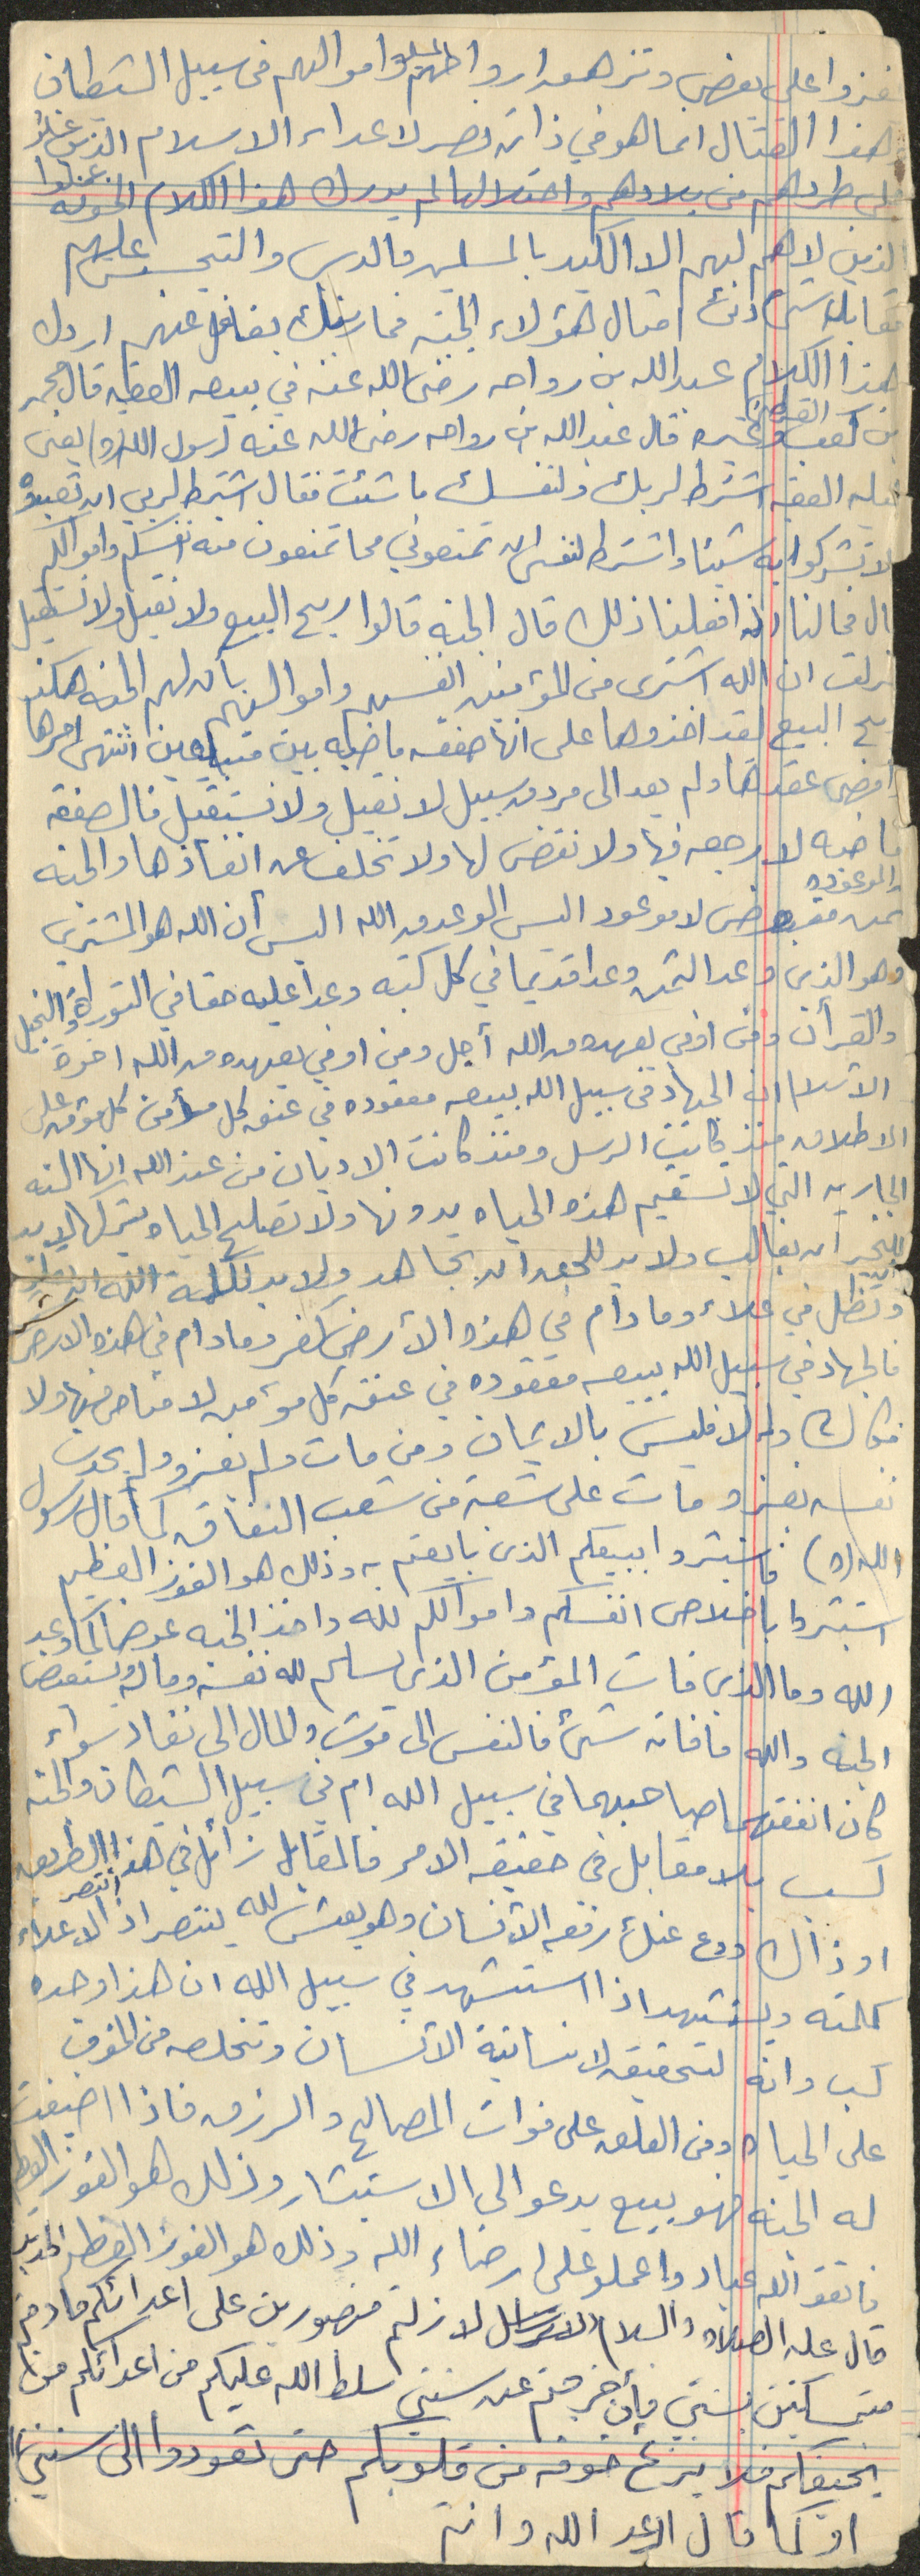 بعضهم على بعض وتزهق ارواحهم واموالهم في سبيل الشيطان
هذا القتال انما هو في ذاته نصر لاعداء الاسلام الذين عملوا
على طردهم من بلادهم واحتلالها لم يدرك هذا الكلام الخونه
الذين لا هم لهم الا الكيد بالمسلمين والدس والتجسس عليهم
مقابل شيء دنئ امثال هؤلاء الجنه
هذا الكلام عبد الله بن رواحه رضى الله عنه في بيعه العقبه قال محمد
بن كعب القرظي وغيره قال عبد الله بن رواحه رضى الله عنه لرسول الله (ص) يعنى
ليله العقبه اشترط لربك ولنفسك ما شئت فقال اشترط لربي ان تعبدوه
ولا تشركوا به شيئا واشترط لنفسي ان تمنعوني مما تمنعون منه انفسكم واموالكم
قال فما لنا اذا فعلنا ذلك قال الجنه قالوا ربح البيع ولا نقيل ولا نستقيل
نزلت ان الله اشترى من المؤمنين انفسهم واموالهم بأن لهم الجنه هكذا
ربح البيع لقد اخذوها على انها صفقه ماضيه بين متبايعين انتهى امرها
وامضى عقدها ولم يعد الى مرد من سبيل لا نقيل ولا نستقيل فالصفقه
ماضيه لا رجعه فيها ولا نقض لها ولا تخلف عن انفاذها والجنه
الموعوده
ثمن مقبوض لا موعود اليس الوعد من الله اليس أن الله هو المشتري
وهو الذي وعد الثمن وعدا قديما في كل كتبه وعدا عليه حقا في التوراة والانجيل
والقرأن ومن اوفي بعهده من الله أجل ومن اوفي بعهده من الله اخوة
الاسلام ان الجهاد في سبيل الله بيعه معقوده في عنق كل مؤمن كل مؤمن على
الاطلاق منذ كانت الرسل ومنذ كانت الاديان من عند الله انها السنه
الجاريه التي لا تستقيم هذه الحياه بدونها ولا تصلح الحياه بتركها لابد
للخير ان يغالب ولا بد للحق ان يجاهد ولا بد لكلمة الله ان تعلو
وتظل في علاء وما دام في هذه الأرض كفر ومادام في هذه الارض شر
فالجهاد في سبيل الله بيعه معقوده في عنق كل مؤمن لا مناص منها ولا
فكاك والا فليس بالايمان ومن مات ولم يغزو ولم يحدث
نفسه بغزو مات على شعبة من شعب النفاق كما قال رسول
الله (ص) فاستبشروا ببيعكم الذى بايعتم به وذلك هو الفوز العظيم
استبشروا باخلاص انفسكم واموالكم لله واخذ الجنه عوضا كما وعد
الله وما الذي فات المؤمن الذي يسلم لله نفسه وماله ويستعيض
الجنه والله ما فاته شئ فالنفس الى موت والمال الى نفاد سواء
كان انفقهما صاحبهما في سبيل الله ام في سبيل الشيطان والجنه
كسب بلا مقابل في حقيقه الامر فالمقابل زائل في هذا الطريق
او ذاك ودع عنك رفعه الانسان وهو يعيش لله ينتصر اذا انتصر لاعلاء
كلمته ويستشهد اذا استشهد في سبيل الله ان هذا وحده
كسب وانه لتحقيق لانسانية الانسان وتخلصه من الخوف
على الحياه ومن القلق على فوات المصالح والرزق فاذا اضيفت
له الجنه فهو بيع يدعو الى الاستبشار وذلك هو الفوز العظيم
فاتقو الله عباد واعملو على ارضاء الله وذلك هو الفوز العظيم الحديث
قال عليه الصلاة والسلام لازلتم منصورين على اعدائكم مادمتم
متمسكين بسنتي فأن خرجتم عن سنتي سلط الله عليكم من اعدائكم من
يخيفكم فلا ينزع خوفه من قلوبكم حتى تعودوا الى سنتي
او كما قال ادعو الله وانتم